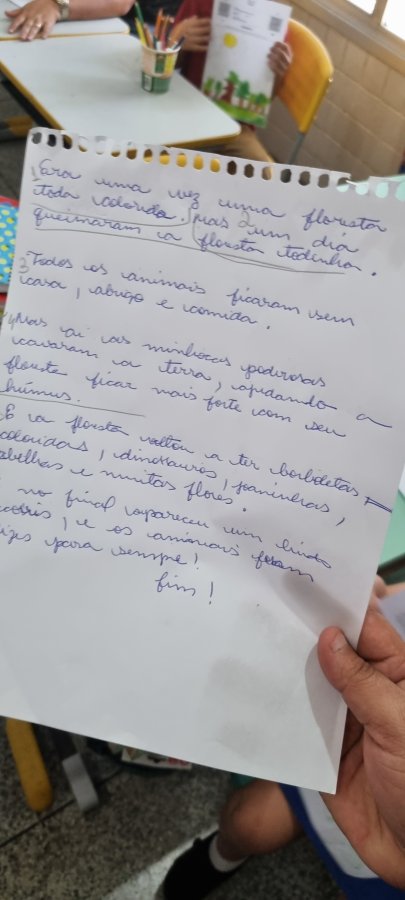 1 Era uma vez uma floresta
toda colorida. Mas 2 um dia
queimaram a floresta todinha.
3 Todos os animais ficaram sem
casa, abrigo e comida.
4 Mas aí as minhocas poderosas
cavaram a terra, ajudando a
floresta ficar mais forte com seu
húmus.
E a floresta voltou a ter borboletas
coloridas, dinossauros, joaninhas,
abelhas e muitas flores.
no final apareceu um lindo
e os animais foram
para sempre!
fim!